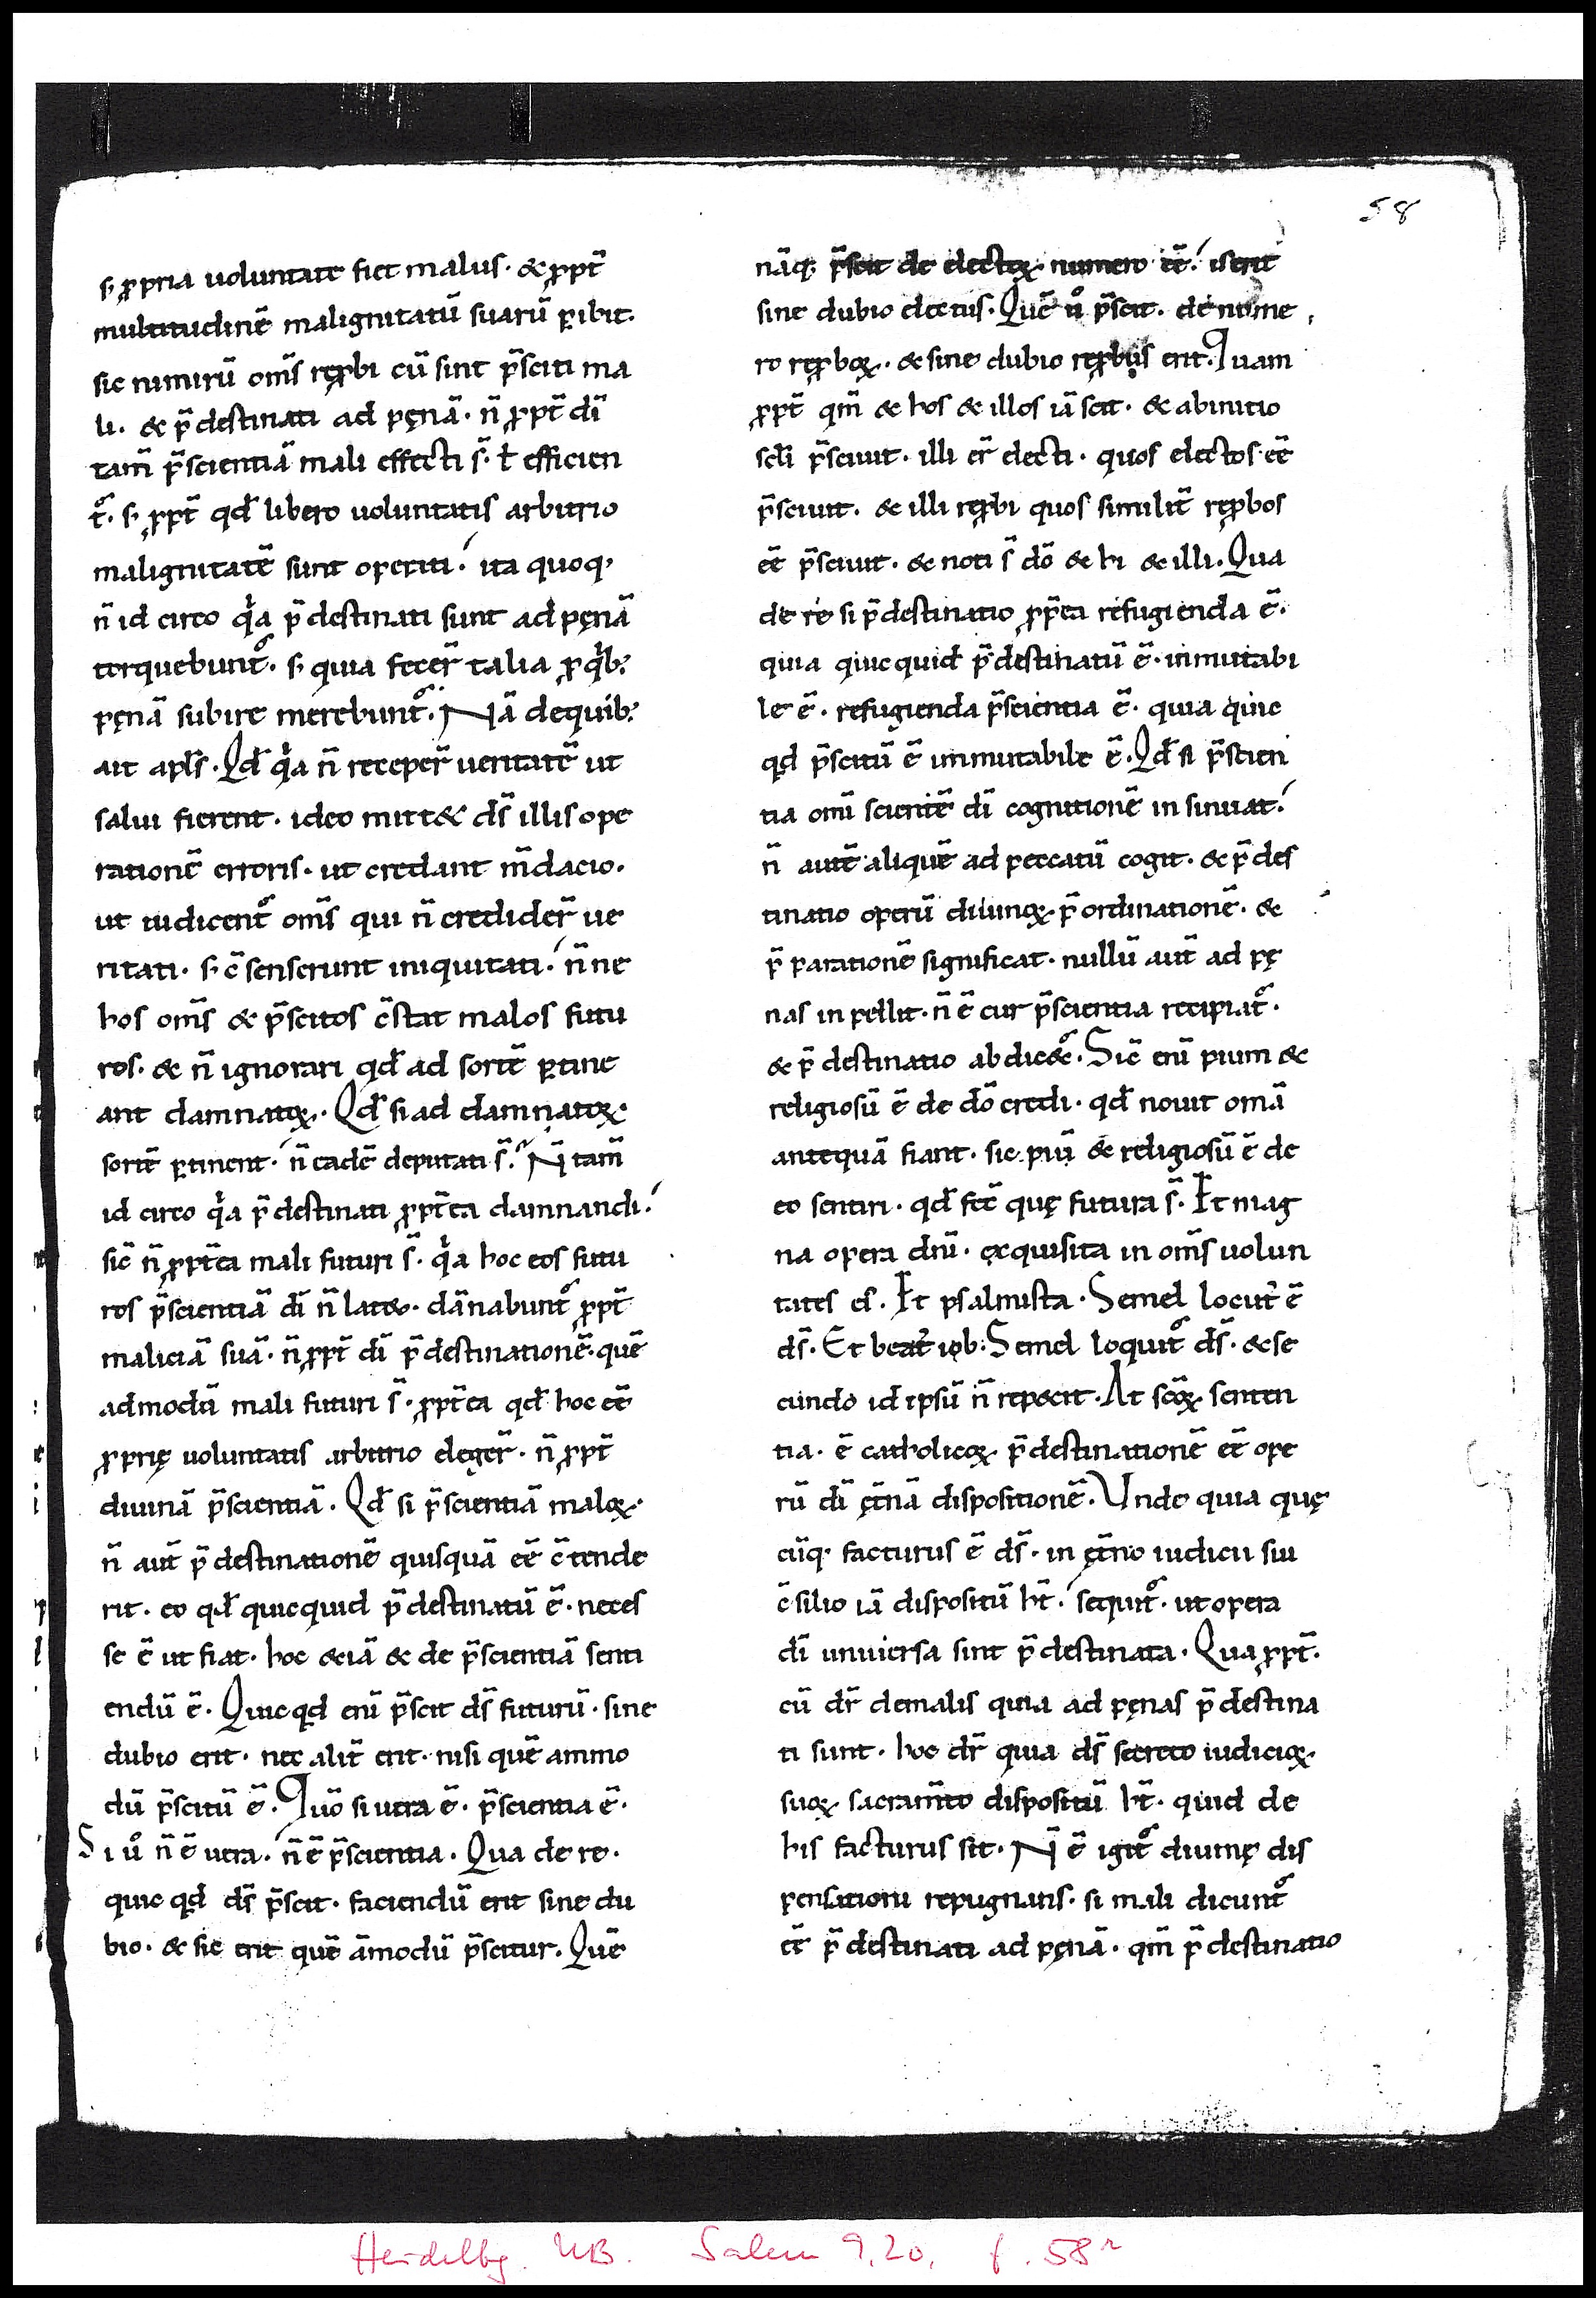 58
s; ꝓpria uoluntate fiet malus· & ꝓpt̄
multitudinē malignitatū suarū ꝑibit.
sic nimirū om̄s rep̱bi cū sint p̄sciti ma
li· & p̄destinati ad pęnā· n̄ ꝓpt̄ dī
tam̄ p̄scientiā mali effecti s̄· ł efficien
t᷑· s; ꝓpt̄ qd̄ libero uoluntatis arbitrio
malignitatē sunt operiti· ita quoq;
n̄ id circo qͥa p̄destinati sunt ad pęnā
torquebunt᷑· s; quia fecer̄ talia ꝓ qͥb;
pęnā subire merebunt᷑· Nā de quib;
ait apl̄s· Qd̄ qͥa n̄ receper̄ ueritatē ut
salui fierent· ideo mitt& ds̄ illis ope
rationē erroris· ut credant m̄dacio·
ut iudicent᷑ om̄s qui n̄ credider̄ ue
ritati· s; c̄senserunt iniquitati· n̄ne
hos om̄s & p̄scitos c̄stat malos futu
ros· & n̄ ignorari qd̄ ad sortē ꝑtine
ant damnatoꝝ· Qd̄ si ad damnatoꝝ
sortē ꝑtinent· n̄ eadē deputati s̄· N̄ tam̄
id circo qͥa p̄destinati ꝓpt̄ea damnandi·
sic̄ n̄ ꝓpt̄ea mali futuri s̄· qͥa hoc eos futu
ros p̄scientiā dī n̄ lat&· dānabunt᷑ ꝓpt̄
maliciā suā· n̄ ꝓpt̄ dī p̄destinationē· quē
admodū mali futuri s̄· ꝓpt̄ea qd̄ hoc eē
ꝓprię uoluntatis arbitrio eleger̄· n̄ ꝓpt̄
diuinā p̄scientiā· Qd̄ si p̄scientiā maloꝝ·
n̄ aut̄ p̄destinationē quisquā eē c̄tende
rit· eo qd̄ quicquid p̄destinatū ē· neces
se ē ut fiat· hoc &iā & de p̄scientiā senti
endū ē· Quicqd̄ enī p̄scit ds̄ futurū· sine
dubio erit· nec alit̄ erit· nisi quē ammo
dū p̄scitū ē· Quō si uera ē· p̄scientia ē·
Si uͦ n̄ ē uera· n̄ ē p̄scientia· Qua de re·
quic qd̄ ds̄ p̄scit· faciendū erit sine du
bio· & sic erit quē āmodū p̄scitur· Quē
nāq; p̄scit de electoꝝ· numero eē· is erit
sine dubio electus· Quē uͦ p̄scit· de nume
ro rep̱boꝝ· & sine dubio rep̱bus erit· Quam
ꝓpt̄ qm̄ & hos & illos iā scit· & ab initio
scl̄i p̄sciuit· illi er̄ electi· quos electos eē
p̄sciuit· & illi rep̱bi quos similit̄ rep̱bos
eē p̄sciuit· & noti s̄ dō & hi & illi· Qua
de re si p̄destinatio ꝓpt̄ea refugienda ē·
quia quicquid p̄destinatū ē· inmutabi
le ē· refugienda p̄scientia ē· quia quic
qd̄ p̄scitū ē inmutabile ē· Qd̄ si p̄scien
tia om̄i scientē dī cognitionē insinuat·
n̄ autē aliquē ad peccatū cogit· & p̄des
tinatio operū diuinoꝝ p̄ordinationē· &
p̄parationē significat· nullū aut̄ ad pę
nas inpellit· n̄ ē cur p̄scientia recipiat᷑·
& p̄destinatio abdic&᷑· Sic̄ enī pium &
religiosū ē de dō credi· qd̄ nouit omā
antequā fiant· sic piū & religiosū ē de
eo sentiri· qd̄ fec̄ quę futura s̄· It̄ mag
na opera dnī· exquisita in om̄s uolun
tates ei᷒· It̄ psalmista· Semel locut᷒ ē
ds̄· Et beat᷒ iob· Semel loquit᷑ ds̄· & se
cundo id ipsū n̄ rep&it· At scōꝝ senten
tia· ē catholicoꝝ p̄destinationē eē ope
rū dī ęt̄nā dispositionē· Unde quia quę
cūq; facturus ē ds̄· in ęt̄no iudicii sui
c̄silio iā dispositū ht̄· sequit᷑· ut opera
dī uniuersa sint p̄destinata· Qua ꝓpt̄·
cū dr̄ de malis quia ad pęnas p̄destina
ti sunt· hoc dr̄ quia ds̄ secreto iudicioꝝ
suoꝝ sacram̄to dispositū ht̄· quid de
his facturus sit· N̄ ē igit᷑ diuinę dis
pensationi repugnans· si mali dicunt᷑
eē p̄destinati ad pęnā· qm̄ p̄destinatio
Heidelbg. UB. Salem 9,20, f. 58r